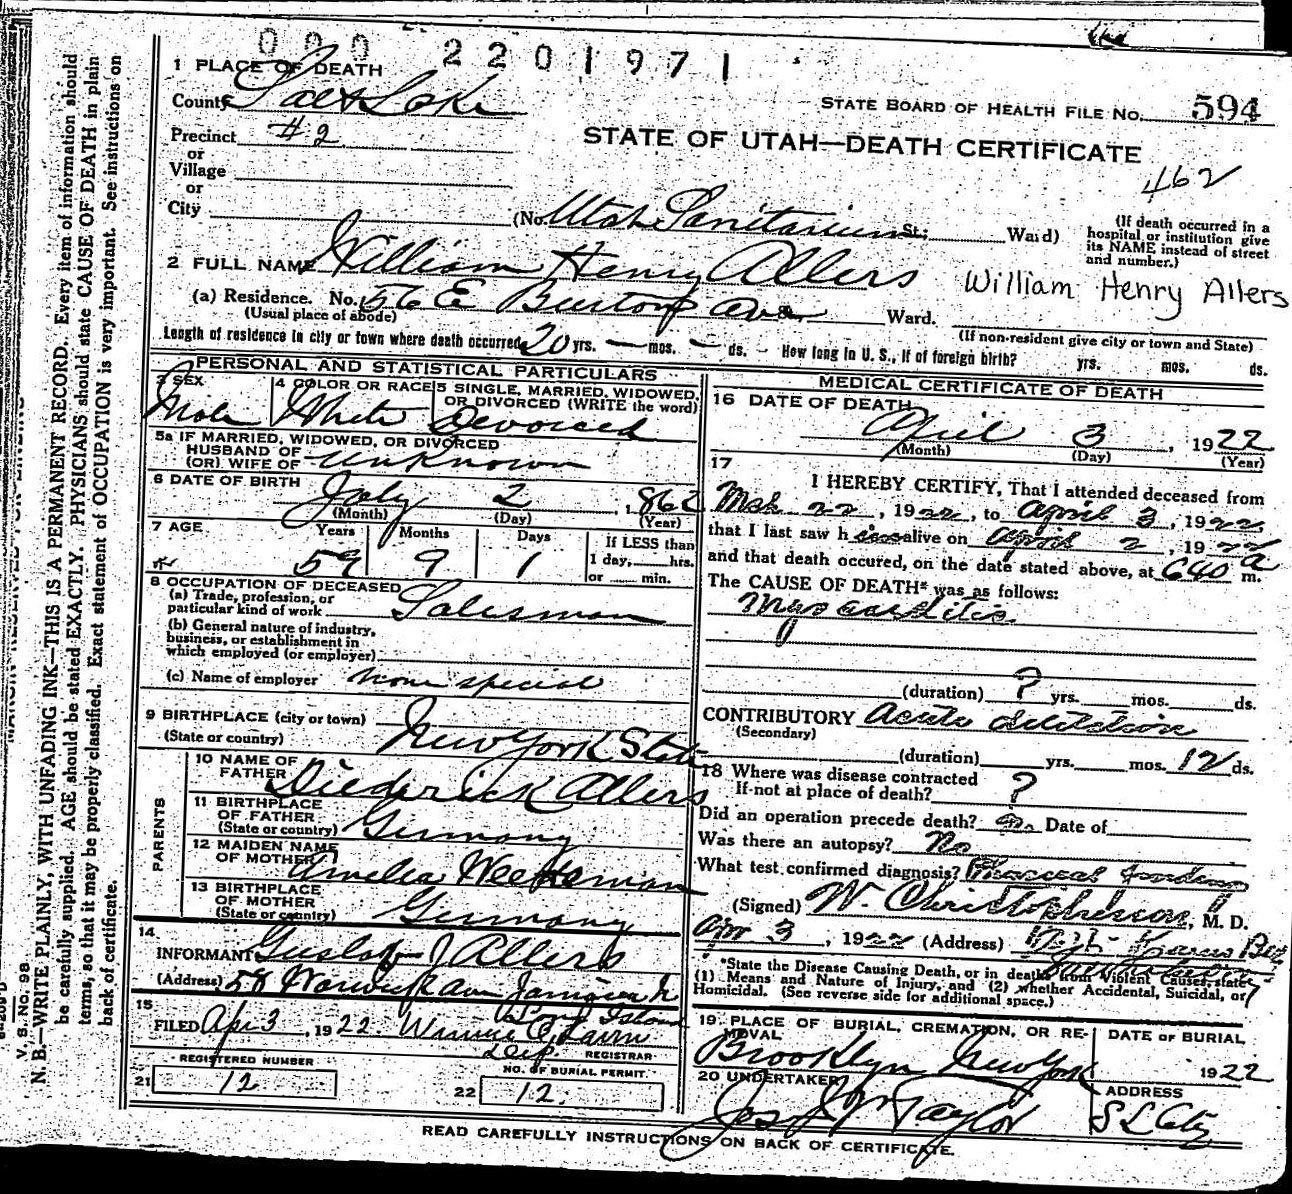 000 2201971
1 PLACE OF DEATH
County Salt Lake
STATE BOARD OF HEALTH FILE No. 594
Precinct #2
STATE OF UTAH—DEATH CERTIFICATE
or
Village
462
or
City
(No. Utah Sanitarium St; Ward)
(If death occurred in a
hospital or institution give
its NAME instead of street
and number.)
2 FULL NAME William Henry Allers
William Henry Allers
(a) Residence. No. 56 E Burton Ave Ward.
(Usual place of abode)
(If non-resident give city or town and State)
Length of residence in city or town where death occurred 20 yrs. — mos. — ds. How long in U. S., if of foreign birth? yrs. mos. ds.
PERSONAL AND STATISTICAL PARTICULARS
3 SEX
4 COLOR OR RACE
5 SINGLE, MARRIED, WIDOWED,
OR DIVORCED (WRITE the word)
Male White Devorced
5a IF MARRIED, WIDOWED, OR DIVORCED
HUSBAND OF
(OR) WIFE OF unknown
6 DATE OF BIRTH July 2, 1862
(Month) (Day) (Year)
7 AGE Years Months Days
59 9 1
if LESS than
1 day, hrs.
or min.
8 OCCUPATION OF DECEASED
(a) Trade, profession, or
particular kind of work Salesman
(b) General nature of industry,
business, or establishment in
which employed (or employer)
(c) Name of employer none special
9 BIRTHPLACE (city or town)
(State or country) New York State
PARENTS
10 NAME OF
FATHER Diederick Allers
11 BIRTHPLACE
OF FATHER
(State or country) Germany
12 MAIDEN NAME
OF MOTHER Amelia
13 BIRTHPLACE
OF MOTHER
(State or country) Germany
14
INFORMANT Gustav J Allers
(Address) 58 Warwick Ave
Long Island
15
FILED Apr 3, 1922
Dep. REGISTRAR
REGISTERED NUMBER
21 12
NO. OF BURIAL PERMIT.
22 12.
MEDICAL CERTIFICATE OF DEATH
16 DATE OF DEATH
April 3, 1922
(Month) (Day) (Year)
17
I HEREBY CERTIFY, That I attended deceased from
Mch 22, 1922, to April 3, 1922
that I last saw him alive on April 2, 1922
and that death occured, on the date stated above, at 640 a m.
The CAUSE OF DEATH* was as follows:
Myocarditis.
(duration) ? yrs. mos. ds.
CONTRIBUTORY Acute dilitation
(Secondary)
(duration) yrs. mos. 12 ds.
18 Where was disease contracted
If not at place of death? ?
Did an operation precede death? no Date of
Was there an autopsy? No
What test confirmed diagnosis? Physical findings
(Signed) W. Christopherson, M. D.
Apr 3, 1922 (Address)
*State the Disease Causing Death, or in deaths from Violent Causes, state
(1) Means and Nature of Injury, and (2) whether Accidental, Suicidal, or
Homicidal. (See reverse side for additional space.)
19 PLACE OF BURIAL, CREMATION, OR RE-
MOVAL
Brooklyn New York
DATE OF BURIAL
1922
20 UNDERTAKER
Jos Wm Taylor
ADDRESS
S L City
READ CAREFULLY INSTRUCTIONS ON BACK OF CERTIFICATE.
V. S. No. 98
N. B.—WRITE PLAINLY, WITH UNFADING INK—THIS IS A PERMANENT RECORD. Every item of information should
be carefully supplied. AGE should be stated EXACTLY. PHYSICIANS should state CAUSE OF DEATH in plain
terms, so that it may be properly classified. Exact statement of OCCUPATION is very important. See instructions on
back of certificate.